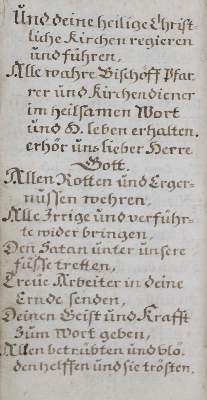 Und deine heilige Christ-
liche Kirchen regieren
und führen,
Alle wahre Bischöff Pfar
rer und Kirchendiener
im heilsamen Wort
und H. leben erhalten.
erhör uns lieber Herre
Gott.
Allen Rotten und Erger-
nüssen wehren,
Alle Irrige und verführ-
te wider bringen,
Den Satan unter unsere
füsse tretten,
Treüe Arbeiter in deine
Ernde senden,
Deinen Geist und Krafft
Zum Wort geben,
Allen betrübten und blö-
den helffen und sie trösten.